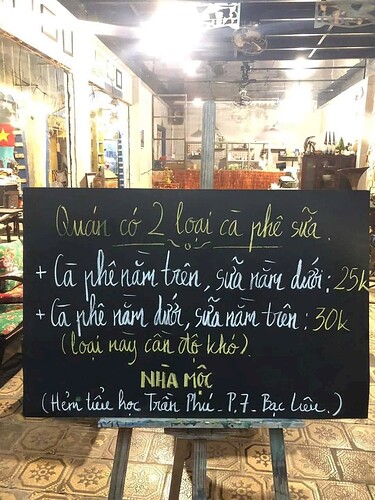 Quán có 2 loại cà phê sữa.
+ Cà phê nằm trên, sữa nằm dưới: 25k
+ Cà phê nằm dưới, sữa nằm trên: 30k
(loại này cần độ khó).
NHÀ MỘC
(Hẻm tiểu học Trần Phú - P.7 - Bạc Liêu.)